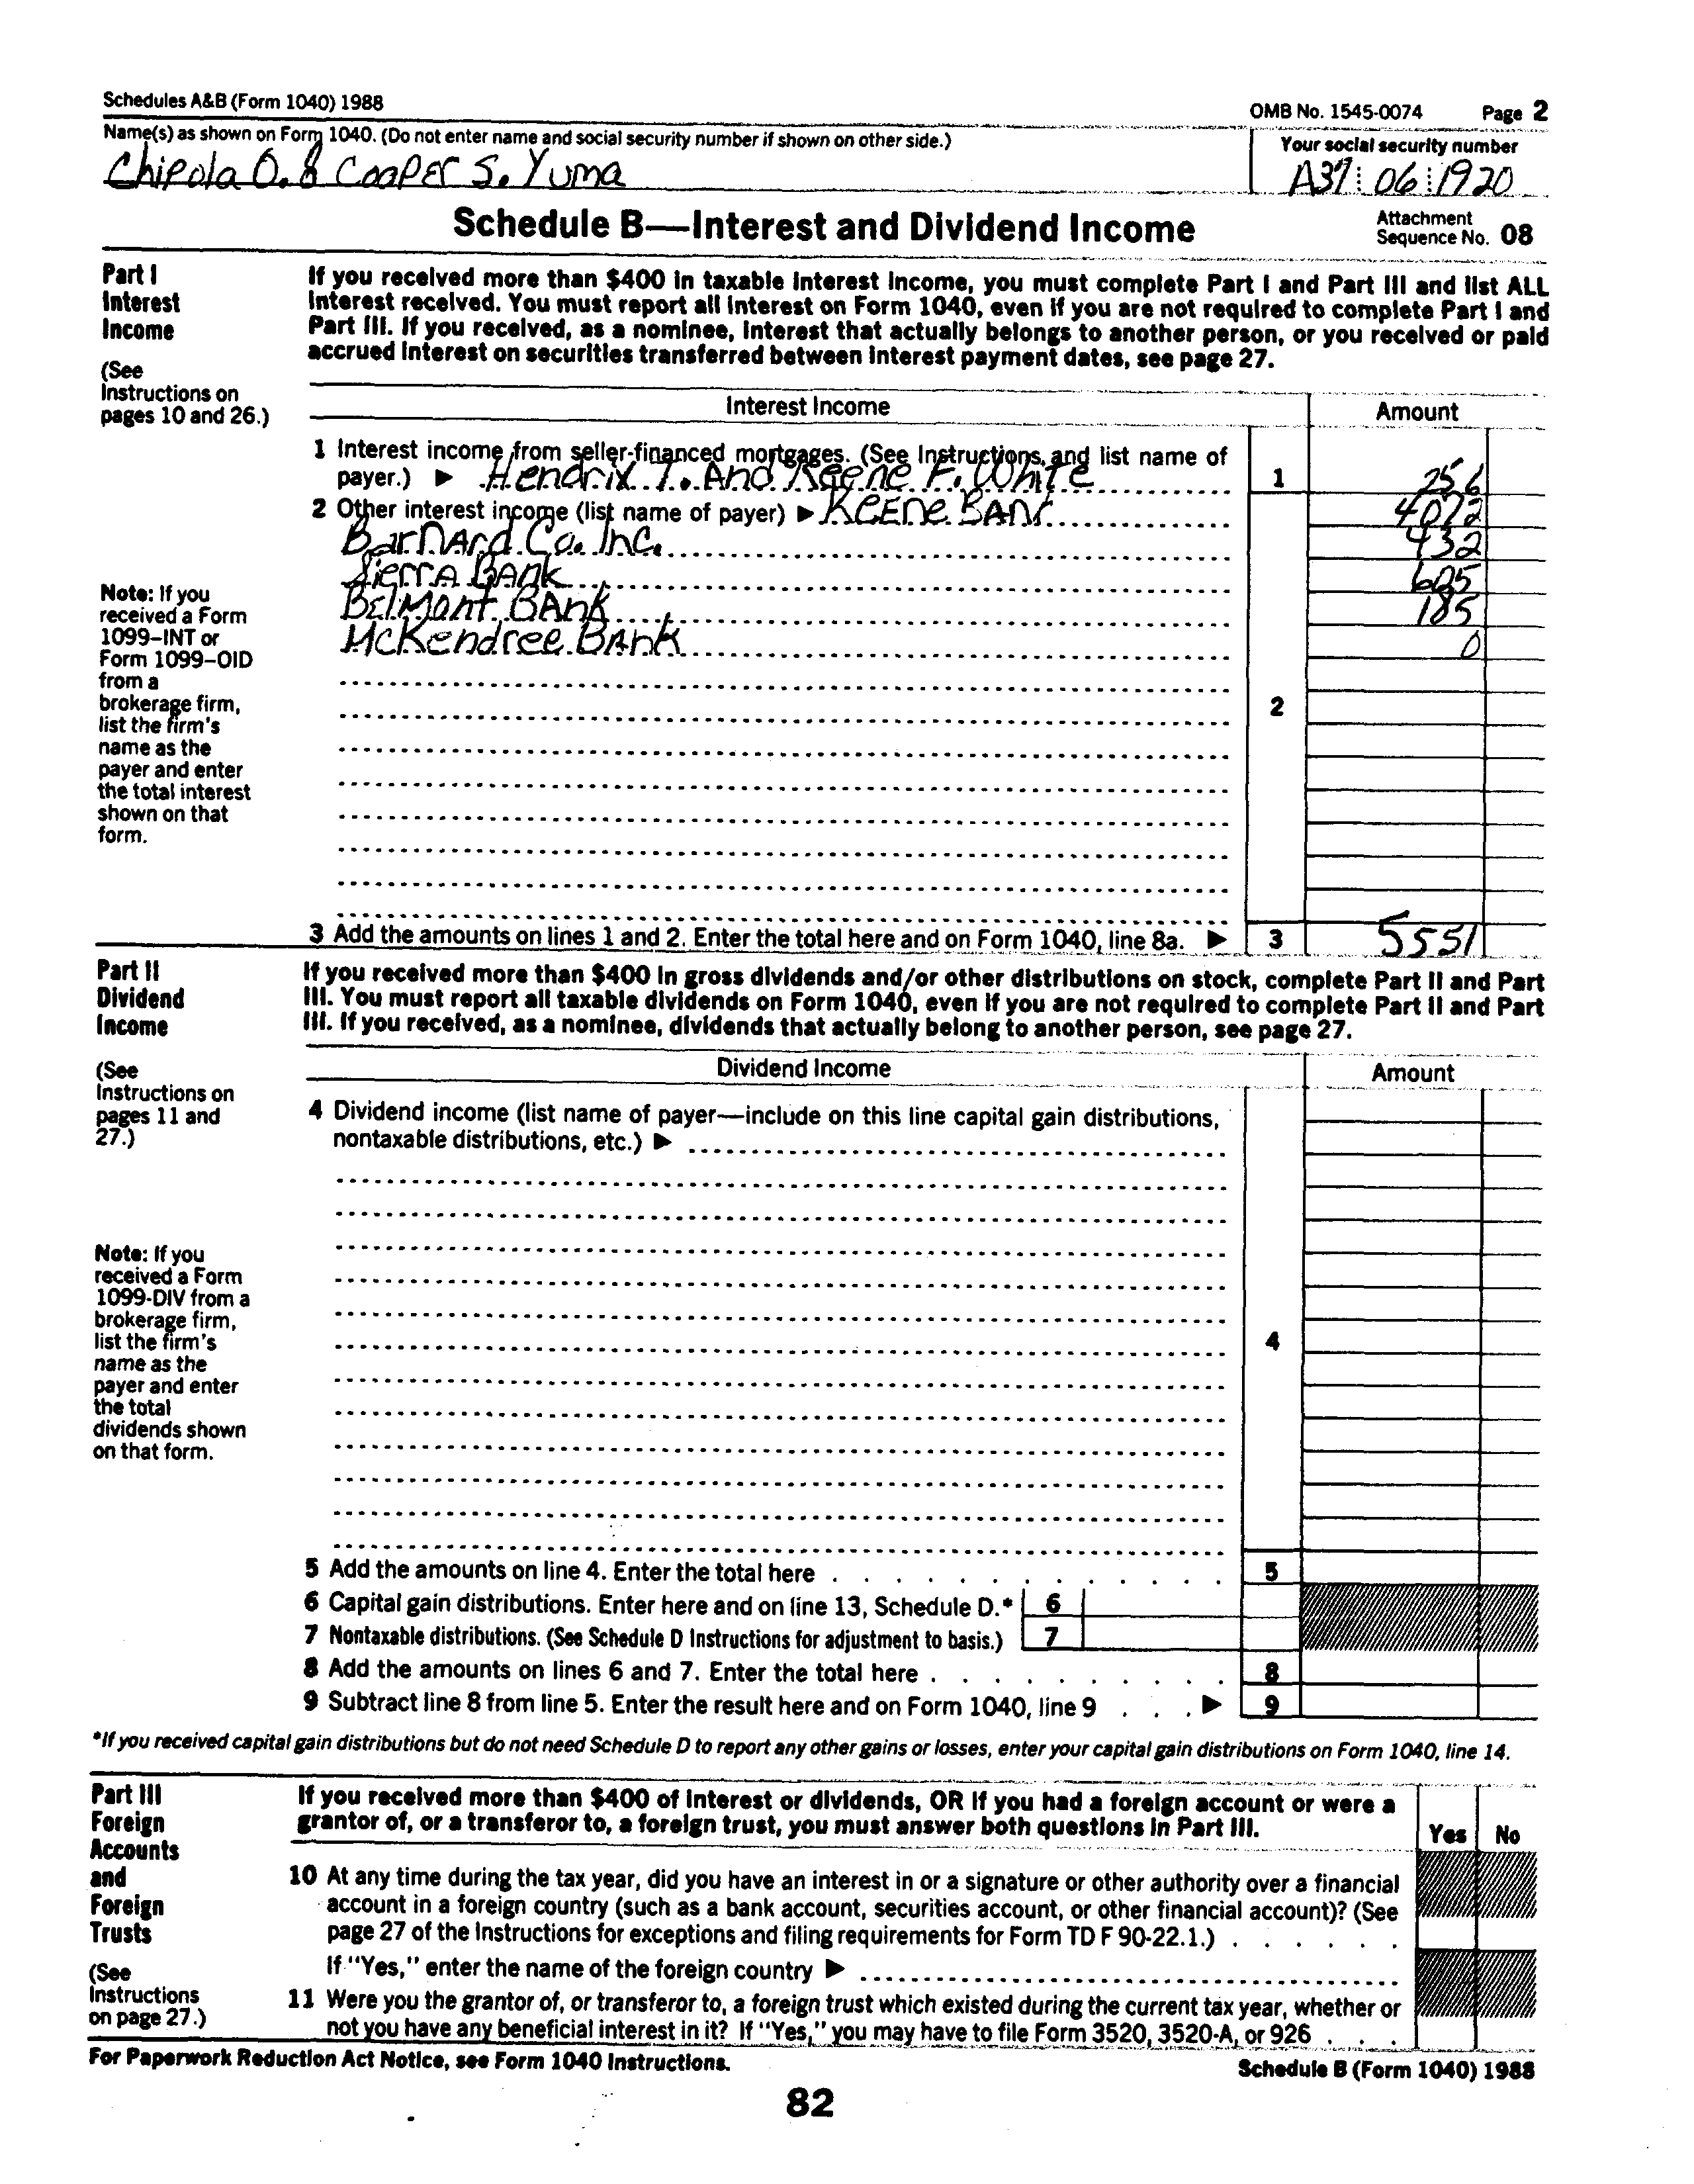 Schedules A&B (Form 1040) 1988
OMB No. 1545-0074 Page 2
Name(s) as shown on Form 1040. (Do not enter name and social security number if shown on other side.)
Your social security number
Chipola O. & Cooper S. Yuma
A37 06 1920
Schedule B—Interest and Dividend Income
Attachment
Sequence No. 08
Part I
Interest
Income
(See
Instructions on
pages 10 and 26.)
If you received more than $400 in taxable interest income, you must complete Part I and Part III and list ALL
interest received. You must report all interest on Form 1040, even if you are not required to complete Part I and
Part III. If you received, as a nominee, interest that actually belongs to another person, or you received or paid
accrued interest on securities transferred between interest payment dates, see page 27.
Interest Income Amount
1 Interest income from seller-financed mortgages. (See Instructions and list name of
payer.) ▶ Hendrix T. And Keene F. White 1 256
2 Other interest income (list name of payer) ▶ Keene Bank 4072
Barnard Co. Inc. 432
Sierra Bank 605
Belmont Bank 185
McKendree Bank 0
2
Note: If you
received a Form
1099–INT or
Form 1099–OID
from a
brokerage firm,
list the firm's
name as the
payer and enter
the total interest
shown on that
form.
3 Add the amounts on lines 1 and 2. Enter the total here and on Form 1040, line 8a. ▶ 3 5551
Part II
Dividend
Income
(See
Instructions on
pages 11 and
27.)
If you received more than $400 in gross dividends and/or other distributions on stock, complete Part II and Part
III. You must report all taxable dividends on Form 1040, even if you are not required to complete Part II and Part
III. If you received, as a nominee, dividends that actually belong to another person, see page 27.
Dividend Income Amount
4 Dividend income (list name of payer—include on this line capital gain distributions,
nontaxable distributions, etc.) ▶
4
Note: If you
received a Form
1099-DIV from a
brokerage firm,
list the firm's
name as the
payer and enter
the total
dividends shown
on that form.
5 Add the amounts on line 4. Enter the total here . . . . . . . . . . . . . 5
6 Capital gain distributions. Enter here and on line 13, Schedule D.* 6
7 Nontaxable distributions. (See Schedule D Instructions for adjustment to basis.) 7
8 Add the amounts on lines 6 and 7. Enter the total here . . . . . . . . . . 8
9 Subtract line 8 from line 5. Enter the result here and on Form 1040, line 9 . . . ▶ 9
*If you received capital gain distributions but do not need Schedule D to report any other gains or losses, enter your capital gain distributions on Form 1040, line 14.
Part III
Foreign
Accounts
and
Foreign
Trusts
(See
Instructions
on page 27.)
If you received more than $400 of interest or dividends, OR if you had a foreign account or were a
grantor of, or a transferor to, a foreign trust, you must answer both questions in Part III.
Yes No
10 At any time during the tax year, did you have an interest in or a signature or other authority over a financial
account in a foreign country (such as a bank account, securities account, or other financial account)? (See
page 27 of the Instructions for exceptions and filing requirements for Form TD F 90-22.1.) . . . . . .
If "Yes," enter the name of the foreign country ▶
11 Were you the grantor of, or transferor to, a foreign trust which existed during the current tax year, whether or
not you have any beneficial interest in it? If "Yes," you may have to file Form 3520, 3520-A, or 926 . . .
For Paperwork Reduction Act Notice, see Form 1040 Instructions.
Schedule B (Form 1040) 1988
82